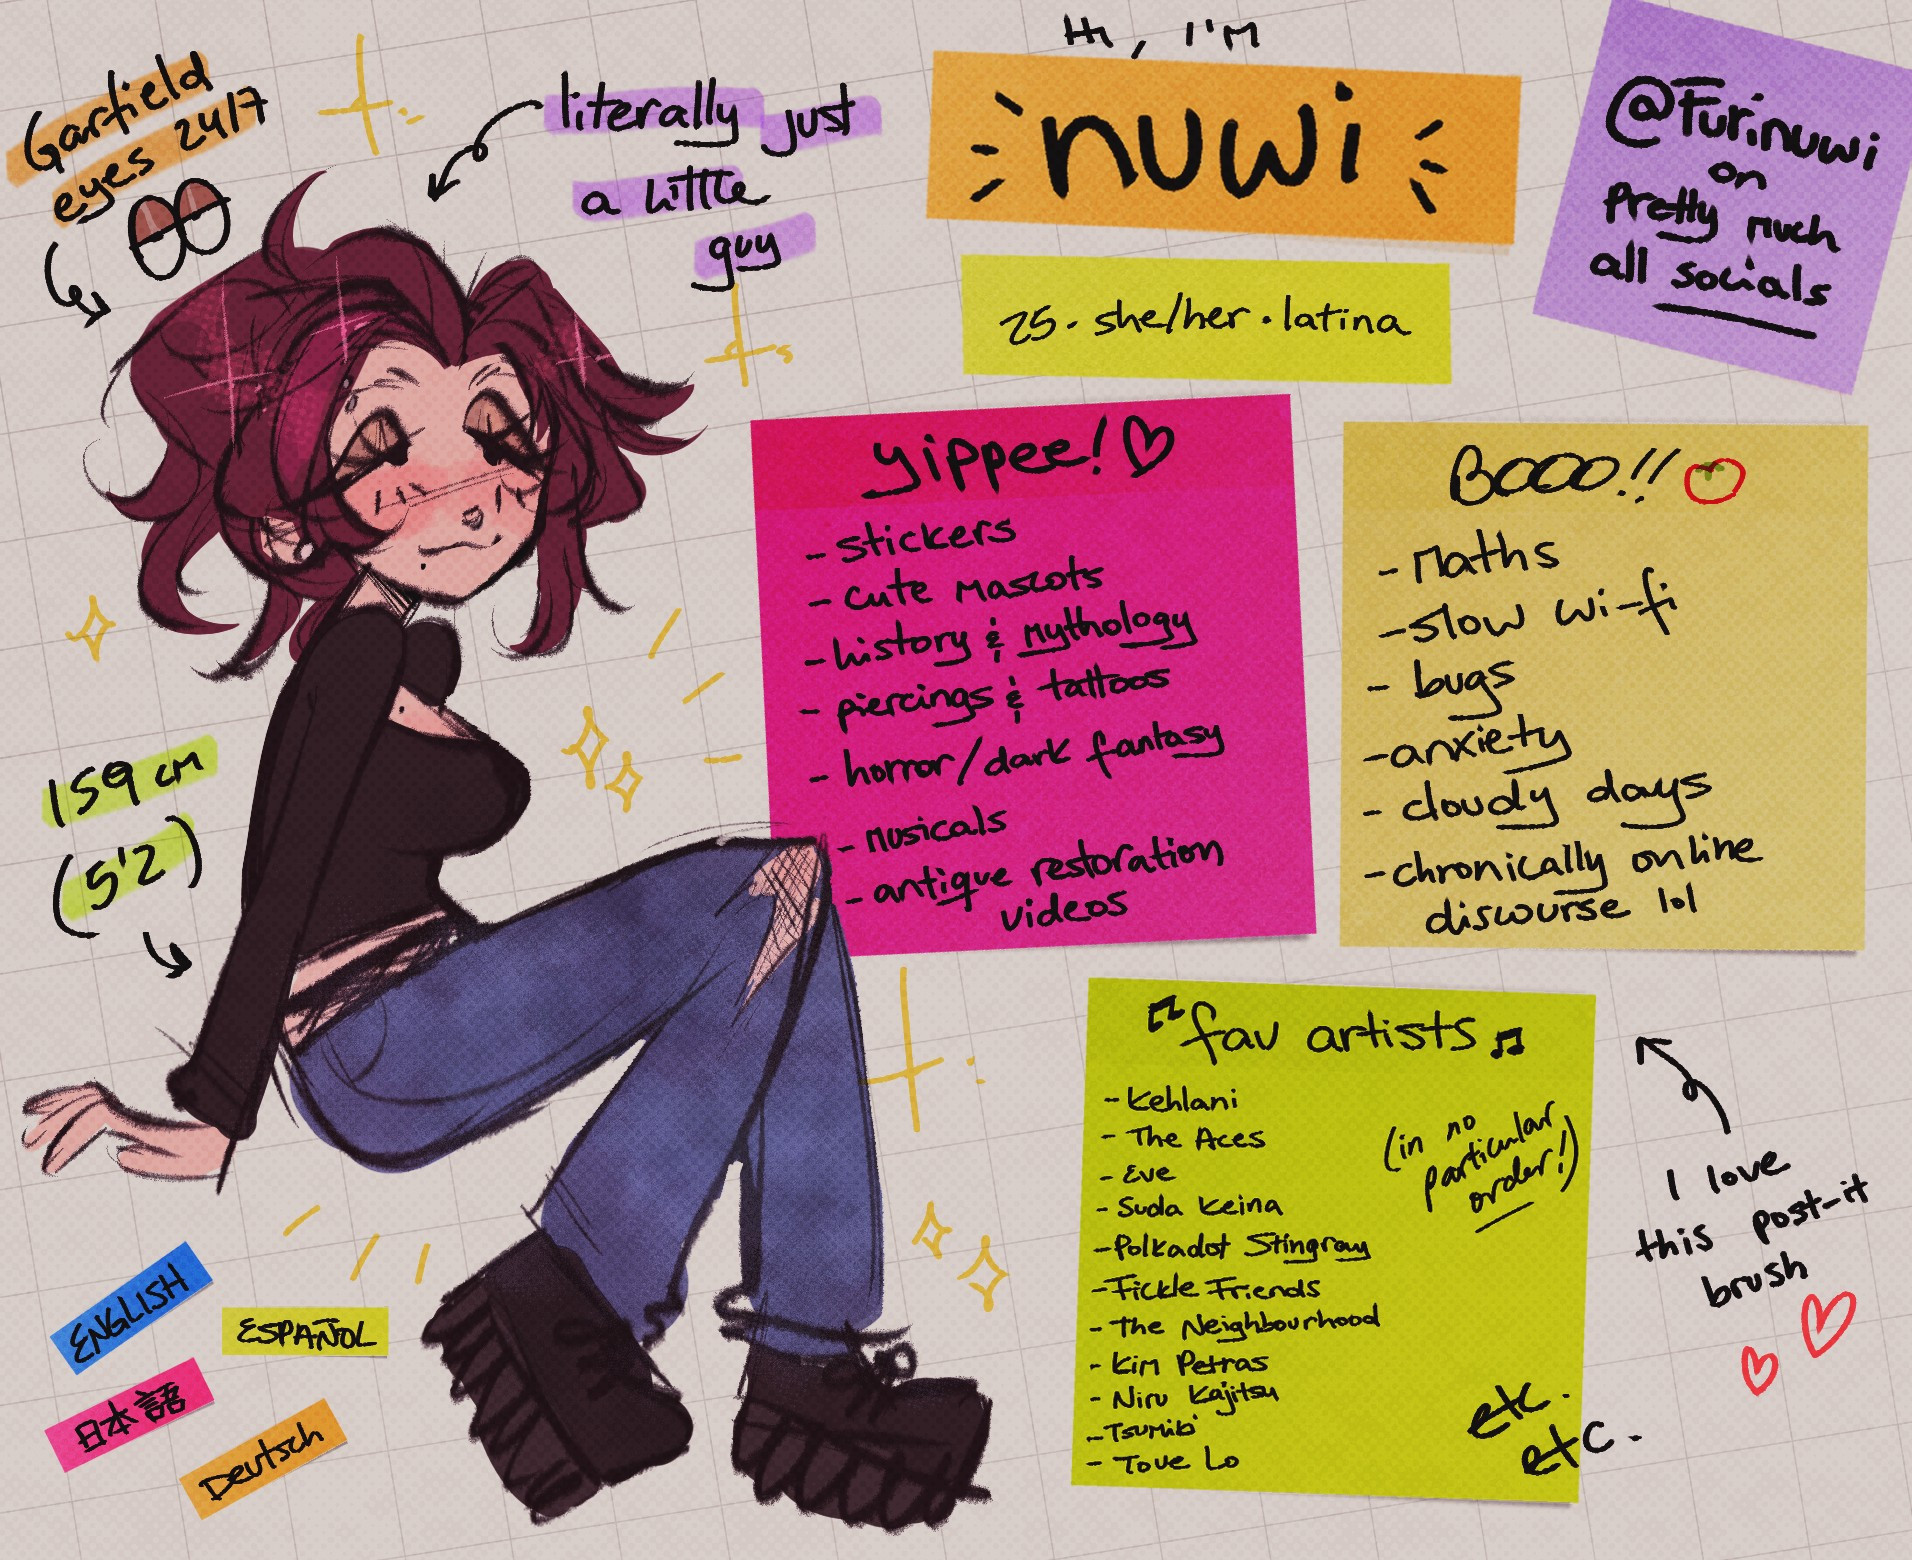 Garfield
eyes 24/7
literally just
a little
guy
Hi, I'm
nuwi
25. she/her. latina
@Furinuwi
on
pretty much
all socials
yippee!
- stickers
- cute mascots
- history & mythology
- piercings & tattoos
- horror/dark fantasy
- musicals
- antique restoration
videos
Booo!!
- Maths
- slow wi-fi
- bugs
- anxiety
- cloudy days
- chronically online
discourse lol
159 cm
(5'2)
fav artists
(in no
particular
order!)
- Kehlani
- The Aces
- Eve
- Suda Keina
- Polkadot Stingray
- Fickle Friends
- The Neighbourhood
- Kim Petras
- Niru Kajitsu
- Tsumiki
- Tove Lo
etc.
etc.
I love
this post-it
brush
ENGLISH
ESPAÑOL
日本語
Deutsch